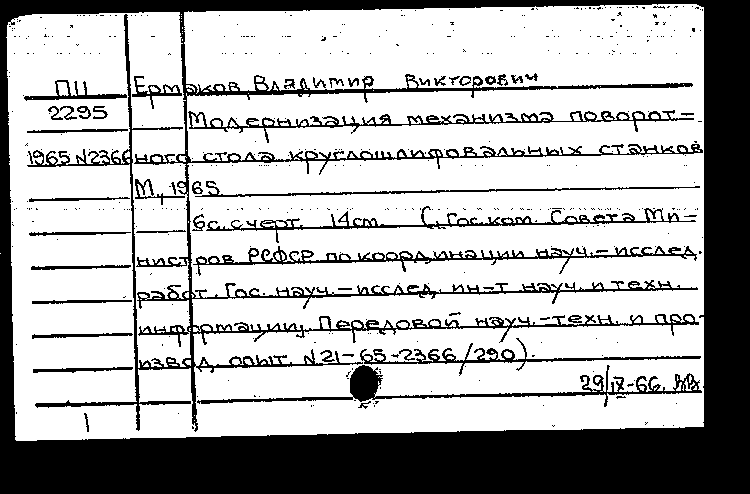 П11 Ермаков, Владимир Викторович
2295 Модернизация механизма поворот=
1965 №2366 ного стола круглошлифовальных станков
М., 1965
6с. с черт. 14см. (Гос. ком. Совета Ми-
нистров РСФСР по координации науч.-исслед.
работ. Гос. науч.-исслед. ин-т науч. и техн.
информации. Передовой науч.-техн. и про-
извод. опыт. №21-65-2366/290).
29/IX-66.